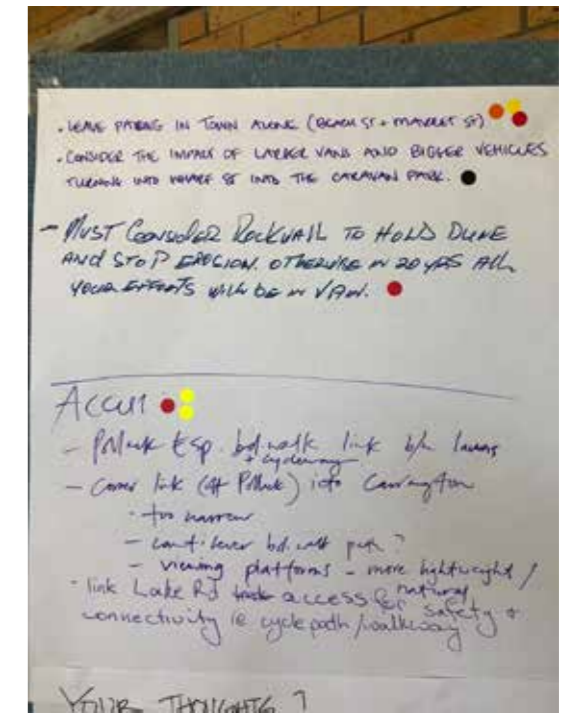 . LEAVE PARKING IN TOWN ALONE (BEACH ST + MARKET ST)
. CONSIDER THE IMPACT OF LARGER VANS AND BIGGER VEHICLES
TURNING INTO WHARF ST INTO THE CARAVAN PARK.
- MUST CONSIDER ROCKWALL TO HOLD DUNE
AND STOP EROSION. OTHERWISE IN 20 YRS ALL
YOUR EFFORTS WILL BE IN VAIN.
- Pollock Esp. bd. walk link b/n
+ cycleway
- Corner link (off Pollock) into Carrington
. too narrow
- cant. lever bd. walk path?
- viewing platforms - more lightweight /
natural
. link Lake Rd access for safety &
connectivity ie cyclepath / walkway
YOUR THOUGHTS ?